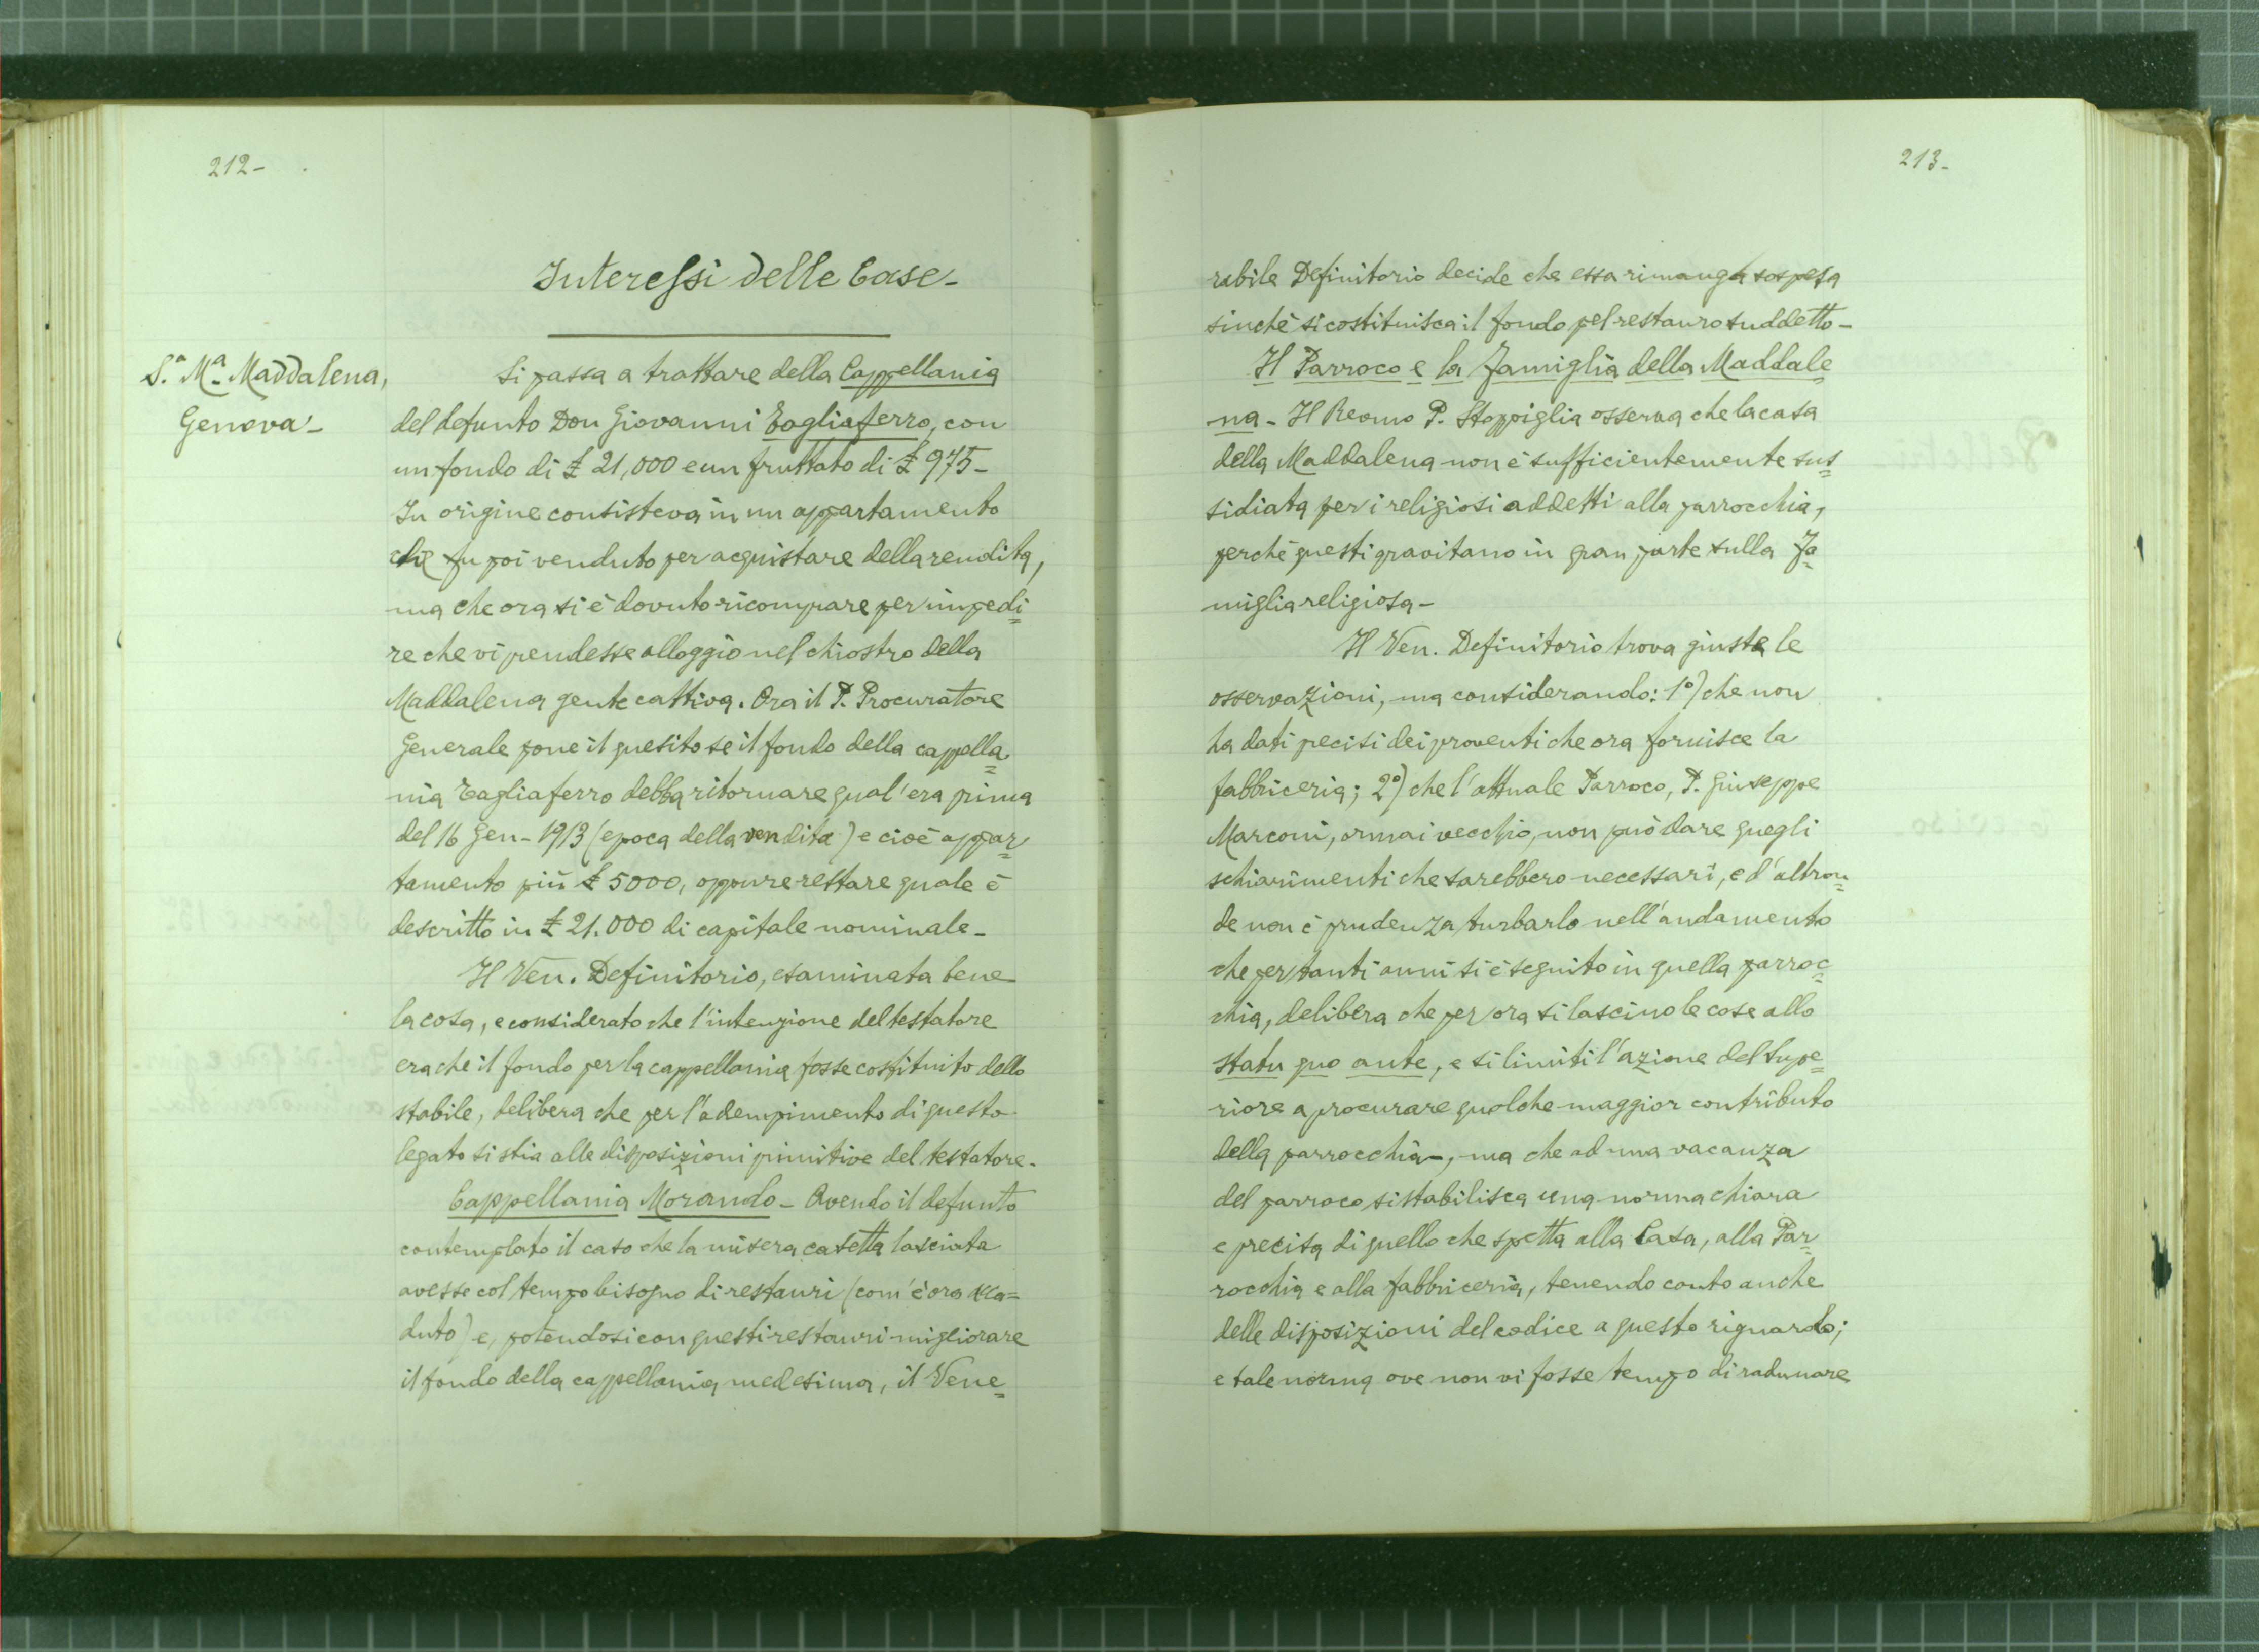 212-
Interessi delle Case-
S.a M.a Maddalena,
Genova-
Si passa a trattare della Cappellania
del defunto Don Giovanni Tagliaferro, con
un fondo di £ 21,000 e un fruttato di £ 975-
In origine consisteva in un appartamento
che fu poi venduto per acquistare della rendita,
ma che ora si è dovuto ricomprare per impedi=
re che vi prendesse alloggio nel chiostro della
Maddalena gente cattiva. Ora il P. Procuratore
Generale pone il quesito se il fondo della cappella=
nia Tagliaferro debba ritornare qual'era prima
del 16 Gen- 1913 (epoca della vendita) e cioè appar=
tamento più £ 5000, oppure restare quale è
descritto in £ 21.000 di capitale nominale-
Il Ven. Definitorio, esaminata bene
la cosa, e considerato che l'intenzione del testatore
era che il fondo per la cappellania fosse costituito dello
stabile, delibera che per l'adempimento di questo
legato si stia alle disposizioni primitive del testatore.
Cappellania Morando- Avendo il defunto
contemplato il caso che la misera casetta lasciata
avesse col tempo bisogno di restauri (com'è ora acca=
duto) e, potendosi con questi restauri migliorare
il fondo della cappellania medesima, il Vene=
213-
rabile Definitorio decide che essa rimanga sospesa
sinché si costituisca il fondo pel restauro suddetto-
Il Parroco e la Famiglia della Maddale
na- Il Reomo P. Stoppiglia osserva che la casa
della Maddalena non è sufficientemente sus=
sidiata per i religiosi addetti alla parrocchia,
perché questi gravitano in gran parte sulla Fa=
miglia religiosa-
Il Ven. Definitorio trova giuste le
osservazioni, ma considerando: 1°) che non
ha dati precisi dei proventi che ora fornisce la
fabbriceria; 2°) che l'attuale Parroco, P. Giuseppe
Marconi, ormai vecchio, non può dare quegli
schiarimenti che sarebbero necessari, e d'altron=
de non è prudenza turbarlo nell'andamento
che per tanti anni si è seguito in quella parroc=
chia, delibera che per ora si lascino le cose allo
statu quo ante, e si limiti l'azione del Supe=
riore a procurare qualche maggior contributo
della parrocchia-, ma che ad una vacanza
del parroco si stabilisca una norma chiara
e precisa di quello che spetta alla Casa, alla Par=
rocchia e alla fabbriceria, tenendo conto anche
delle disposizioni del codice a questo riguardo;
e tale norma ove non vi fosse tempo di radunare